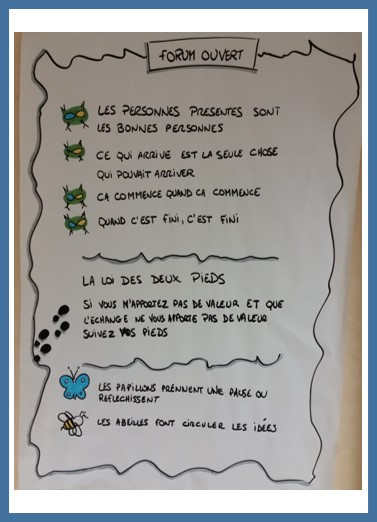 FORUM OUVERT
LES PERSONNES PRESENTES SONT
LES BONNES PERSONNES
CE QUI ARRIVE EST LA SEULE CHOSE
QUI POUVAIT ARRIVER
CA COMMENCE QUAND CA COMMENCE
QUAND C'EST FINI, C'EST FINI
LA LOI DES DEUX PIEDS
SI VOUS N'APPORTEZ PAS DE VALEUR ET QUE
L'ECHANGE NE VOUS APPORTE PAS DE VALEUR
SUIVEZ VOS PIEDS
LES PAPILLONS PRENNENT UNE PAUSE OU
REFLECHISSENT
LES ABEILLES FONT CIRCULER LES IDÉES